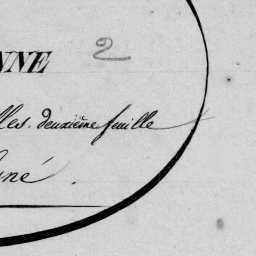 NNE 2
lles. deuxième feuille
gné